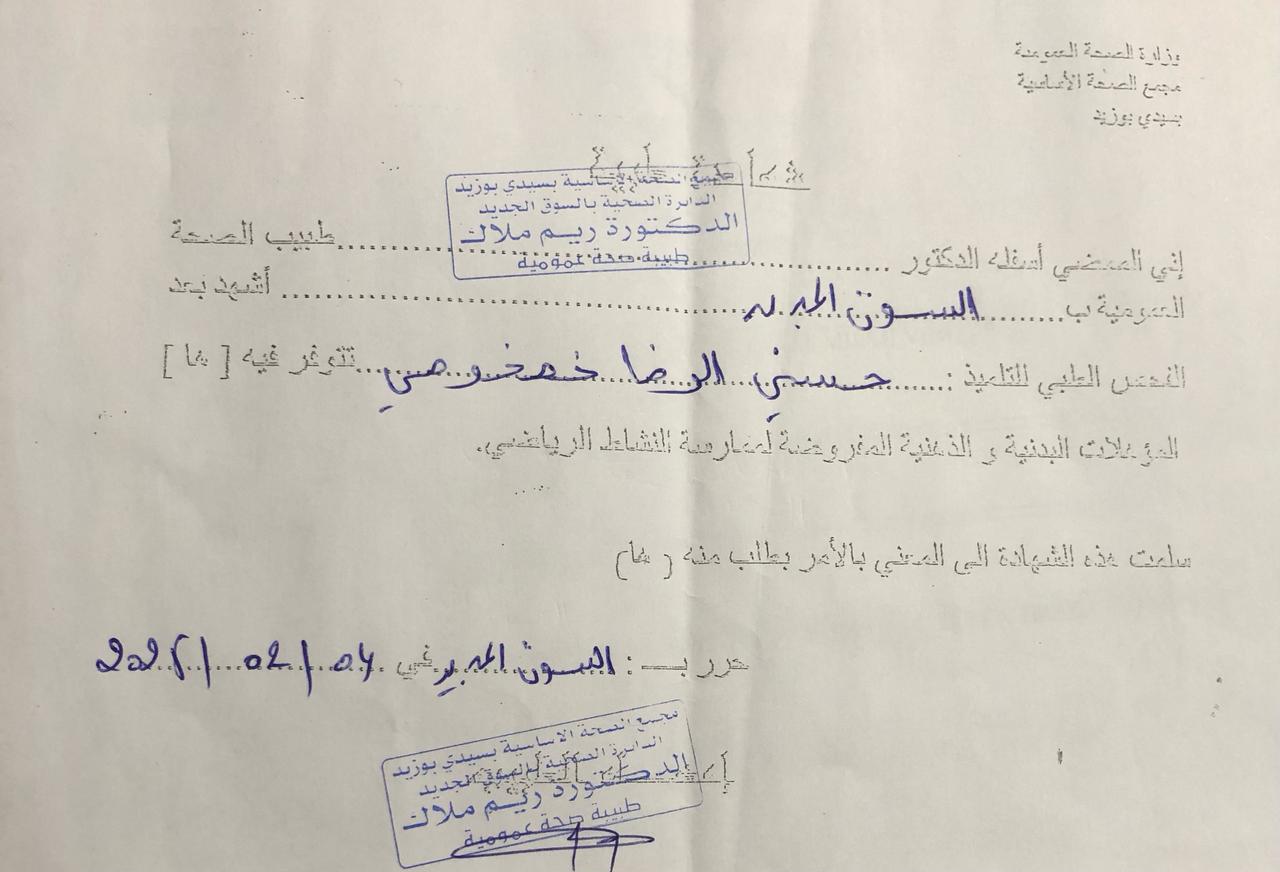 وزارة الصحة العمومية
مجمع الصحة الأساسية
بسيدي بوزيد
شهادة طبية
مجمع الصحة الأساسية بسيدي بوزيد
الدائرة الصحية بالسوق الجديد
الدكتورة ريم ملاك
طبيبة صحة عمومية
إني الممضي أسفله الدكتور ........ طبيب الصحة
العمومية ب........ السوق الجديد ........ أشهد بعد
الفحص الطبي للتلميذ : ........ حسني الرضا خصخوصي ........ تتوفر فيه [ ها ]
المؤهلات البدنية و الذهنية المفروضة لممارسة النشاط الرياضي.
سلمت هذه الشهادة الى المعني بالأمر بطلب منه ( ها)
حرر بـ : السوق الجديد في 04 / 02 /
مجمع الصحة الاساسية بسيدي بوزيد
الدائرة الصحية بالسوق الجديد
الدكتورة ريم ملاك
طبيبة صحة عمومية